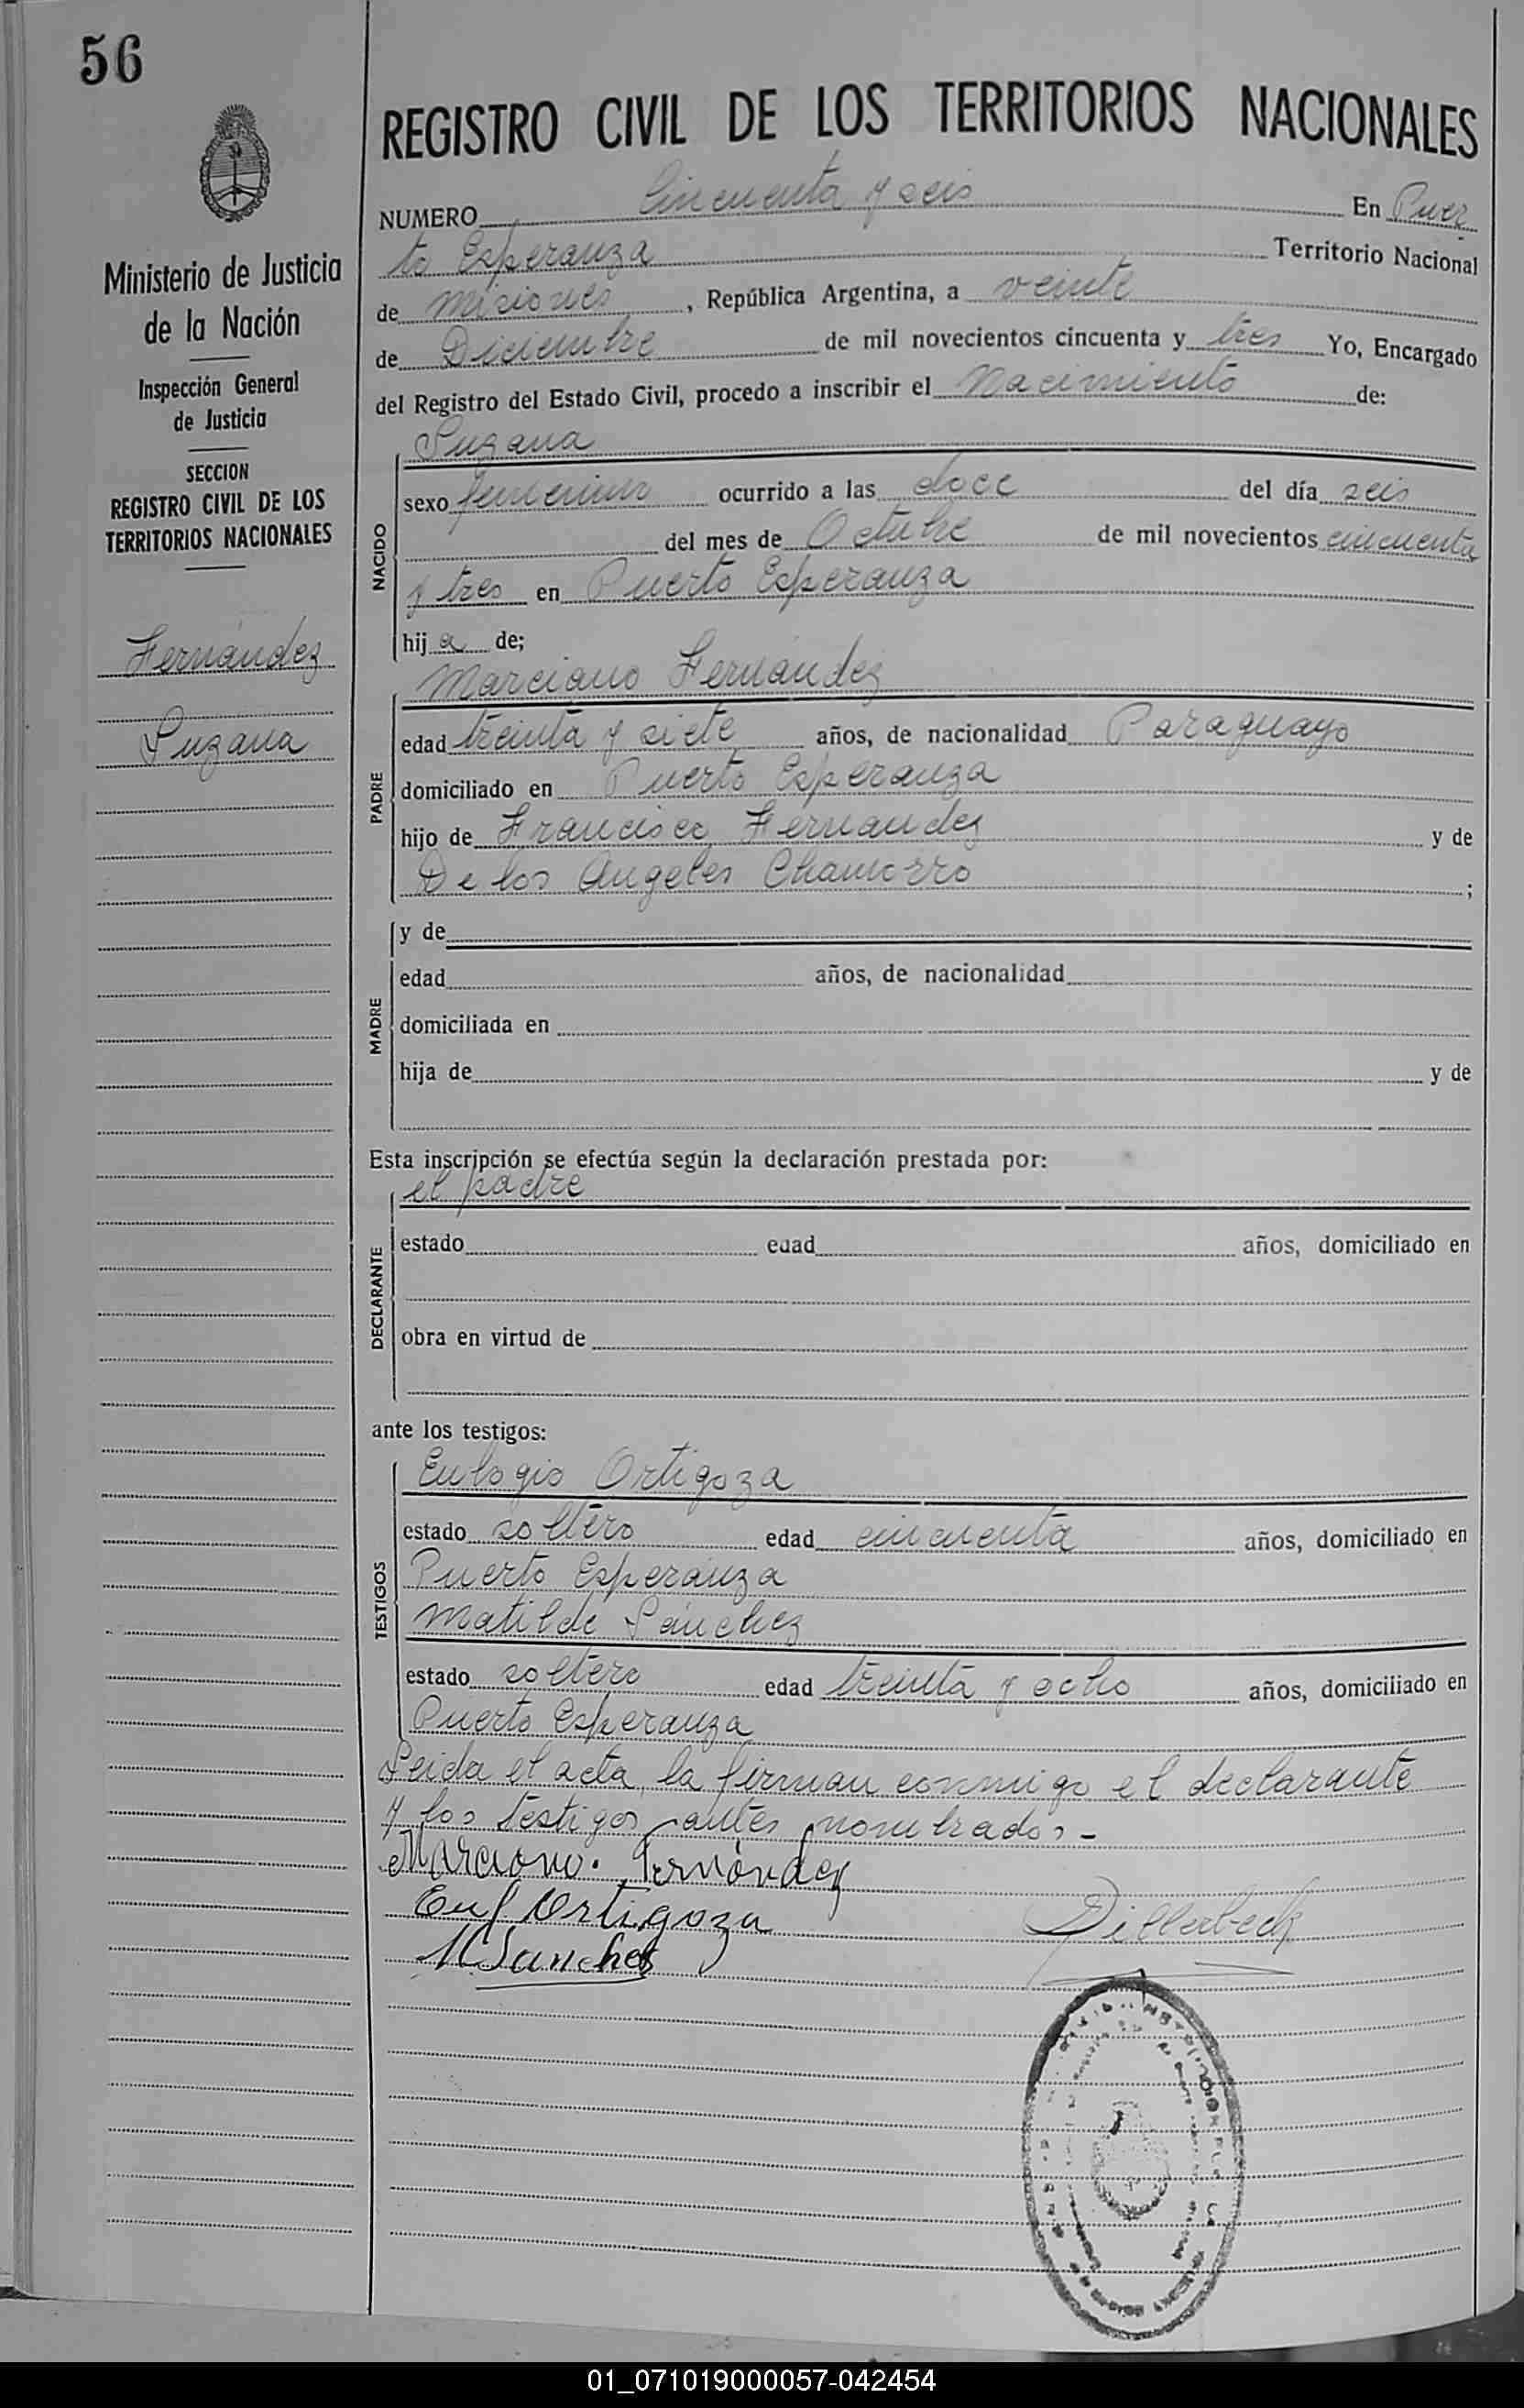 56
REGISTRO CIVIL DE LOS TERRITORIOS NACIONALES
Ministerio de Justicia
de la Nación
Inspección General
de Justicia
SECCION
REGISTRO CIVIL DE LOS
TERRITORIOS NACIONALES
Fernández
Suzana
NUMERO Cincuenta y seis En Puer
to Esperanza Territorio Nacional
de Misiones, República Argentina, a veinte
de Diciembre de mil novecientos cincuenta y tres Yo, Encargado
del Registro del Estado Civil, procedo a inscribir el Nacimiento de:
Suzana
NACIDO
sexo femenino ocurrido a las doce del día seis
del mes de Octubre de mil novecientos cincuenta
y tres en Puerto Esperanza
hij a de;
Marciano Fernández
PADRE
edad treinta y siete años, de nacionalidad Paraguayo
domiciliado en Puerto Esperanza
hijo de Francisco Fernandez y de
De los Angeles Chamorro ;
MADRE
y de
edad años, de nacionalidad
domiciliada en
hija de y de
Esta inscripción se efectúa según la declaración prestada por:
el padre
DECLARANTE
estado edad años, domiciliado en
obra en virtud de
ante los testigos:
Eulogio Ortigoza
TESTIGOS
estado soltero edad cincuenta años, domiciliado en
Puerto Esperanza
Matilde Sánchez
estado soltero edad treinta y ocho años, domiciliado en
Puerto Esperanza
Leida el acta, la firman conmigo el declarante
y los testigos antes nombrados -
Marciano. Fernández
Eul Ortigoza
M Sanchez
Dillerbeck
01_071019000057-042454